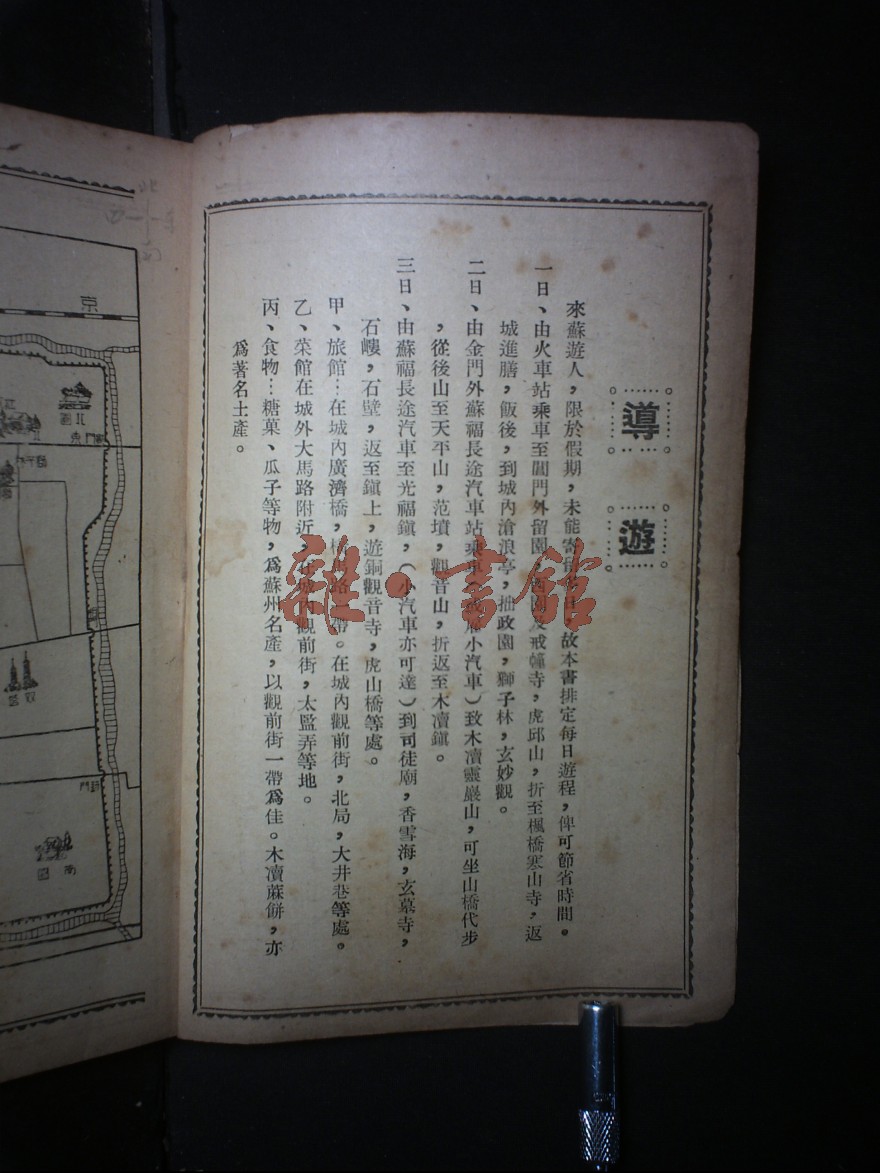 導遊
來蘇遊人，限於假期，未能寄，故本書排定每日遊程，俾可節省時間。
一日、由火車站乘車至閶門外留園，西園及戒幢寺，虎邱山，折至楓橋寒山寺，返
城進膳，飯後，到城內滄浪亭，拙政園，獅子林，玄妙觀。
二日、由金門外蘇福長途汽車站乘車（或雇小汽車）致木凟靈巖山，可坐山橋代步
，從後山至天平山，范墳，觀音山，折返至木凟鎭。
三日、由蘇福長途汽車至光福鎭，（小汽車亦可達）到司徒廟，香雪海，玄墓寺，
石嶁，石壁，返至鎭上，遊銅觀音寺，虎山橋等處。
甲、旅館：在城內廣濟橋，馬路一帶。在城內觀前街，北局，大井巷等處。
乙、菜館在城外大馬路附近，在城內觀前街，太監弄等地。
丙、食物：糖菓、瓜子等物，爲蘇州名產，以觀前街一帶爲佳。木凟蔴餠，亦
爲著名土產。
雜·書館
京
北
南
門